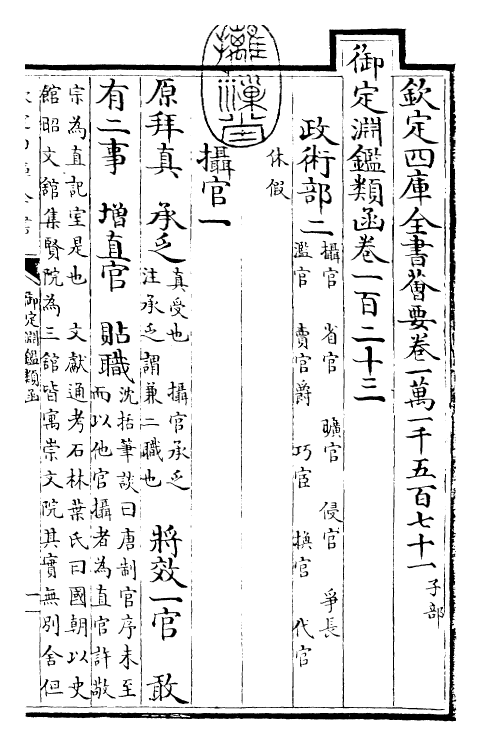 欽定四庫全書薈要卷一萬一千五百七十一 子部
御定淵鑑類函卷一百二十三
政術部二 攝官 省官 曠官 侵官 爭長
濫官 賣官爵 巧宦 換官 代官
休假
攝官一
原拜真 真受也 承乏 攝官承乏
注承乏謂兼二職也 將效一官 敢
有二事 增直官 貼職 沈括筆談曰唐制官序未至
而以他官攝者為直官許敬
宗為直記室是也 文獻通考石林葉氏曰國朝以史
館昭文館集賢院為三館皆寓崇文院其實無別舍但
御定淵鑑類函
一